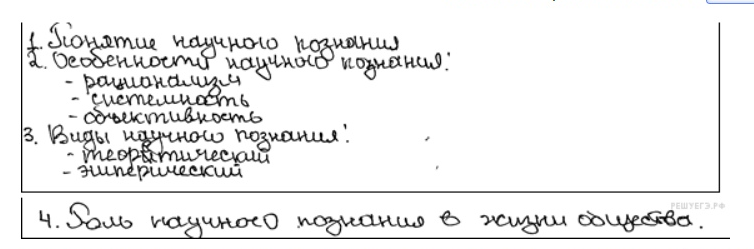 1. Понятие научного познания
2. Особенности научного познания:
- рационализм
- системность
- объективность
3. Виды научного познания:
- теоретический
- эмперический
РЕШУЕГЭ.РФ
4. Роль научного познания в жизни общества.